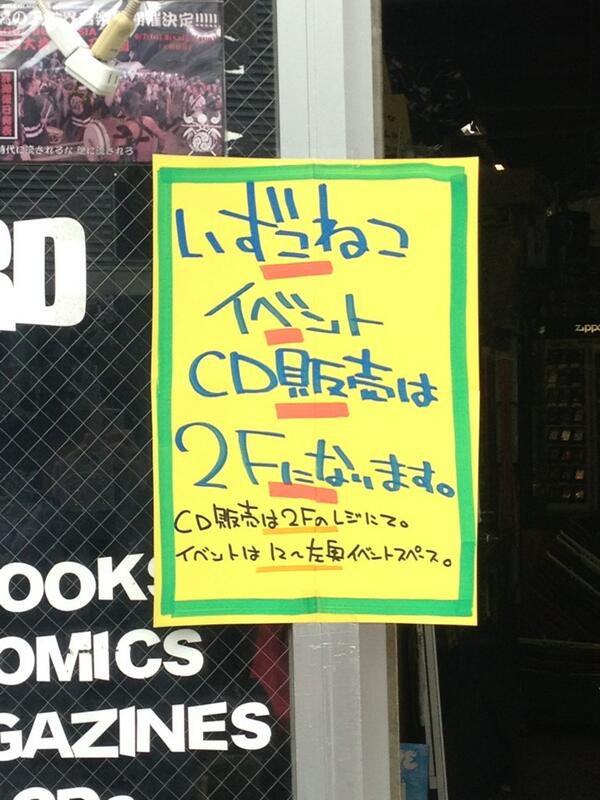 開催決定!!!!!
時代に流されるな 俺に流されろ
いずこねこ
イベント
CD販売は
2Fになります。
CD販売は2Fのレジにて。
イベントは12~左奥イベントスペース。
Zippo
OOKS
OMICS
GAZINES